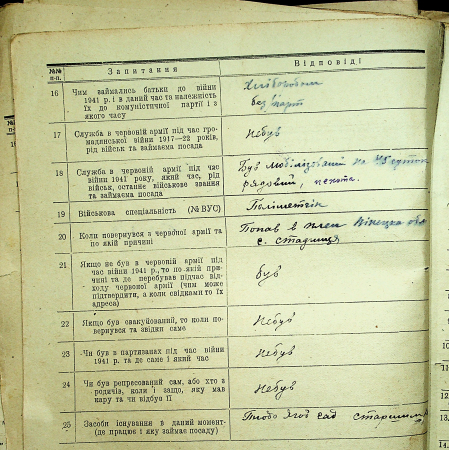 №№ п-п.
Запитання
Відповіді
16
Чим займались батьки до війни
1941 р. і в даний час та належність
їх до комуністичної партії і з
якого часу
Хліборобом
без парт
17
Служба в червоній армії під час гро-
мадянської війни 1917—22 років,
рід військ та займаєма посада
Небув
18
Служба в червоній армії під час
війни 1941 року, який час, рід
військ, останнє військове звання
та займаєма посада
Був мобілізований на 45 суток
рядовий, пехота.
19
Військова спеціальність (№ ВУС)
20
Коли повернувся з червоної армії та
по якій причині
Попав в плен
с. стадниця
21
Якщо не був в червоній армії під
час війни 1941 р., то по якій при-
чині та де перебував підчас від-
ходу червоної армії (чим може
підтвердити, а коли свідками то їх
адреса)
був
22
Якщо був евакуйований, то коли по-
вернувся та звідки саме
Небув
23
Чи був в партизанах під час війни
1941 р. та де саме і який час
Небув
24
Чи був репресований сам, або хто з
родичів, коли і защо, яку мав
кару та чи відбув її
Небув
25
Засоби існування в даний момент-
(де працює і яку займає посаду)
сад